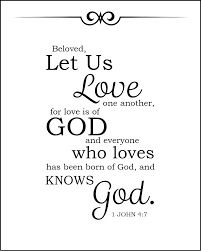 Beloved,
Let Us
Love
one another,
for love is of
GOD
and everyone
who loves
has been born of God, and
KNOWS
God.
1 JOHN 4:7